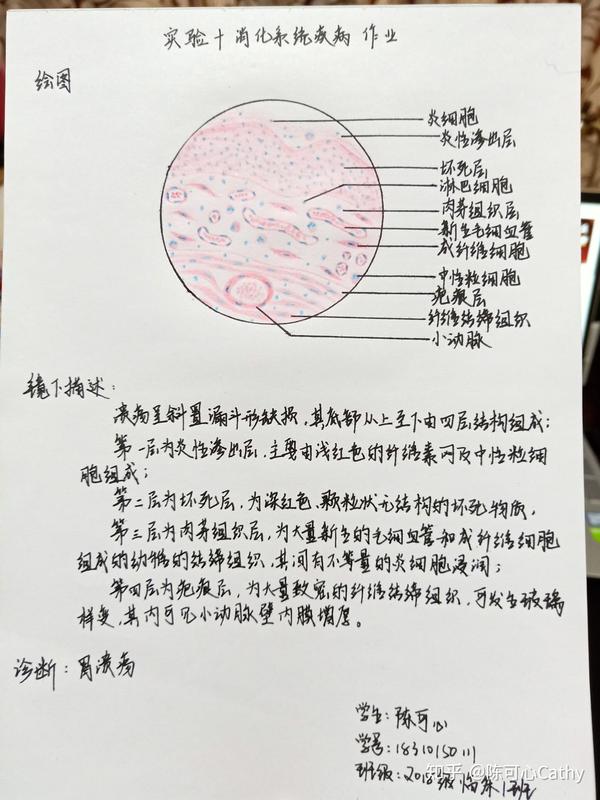 实验十 消化系统疾病 作业
绘图
炎细胞
炎性渗出层
坏死层
淋巴细胞
肉芽组织层
新生毛细血管
成纤维细胞
中性粒细胞
疤痕层
纤维结缔组织
小动脉
镜下描述:
溃疡呈斜置漏斗形缺损,其底部从上至下由四层结构组成:
第一层为炎性渗出层,主要由浅红色的纤维素网及中性粒细
胞组成;
第二层为坏死层,为深红色、颗粒状无结构的坏死物质,
第三层为肉芽组织层,为大量新生的毛细血管和成纤维细胞
组成的幼稚的结缔组织,其间有不等量的炎细胞浸润;
第四层为疤痕层,为大量致密的纤维结缔组织,可发生玻璃
样变,其内可见小动脉壁内膜增厚。
诊断:胃溃疡
学生:陈可心
学号:1831015011
班级:2018级临床1班
知乎 @陈可心Cathy